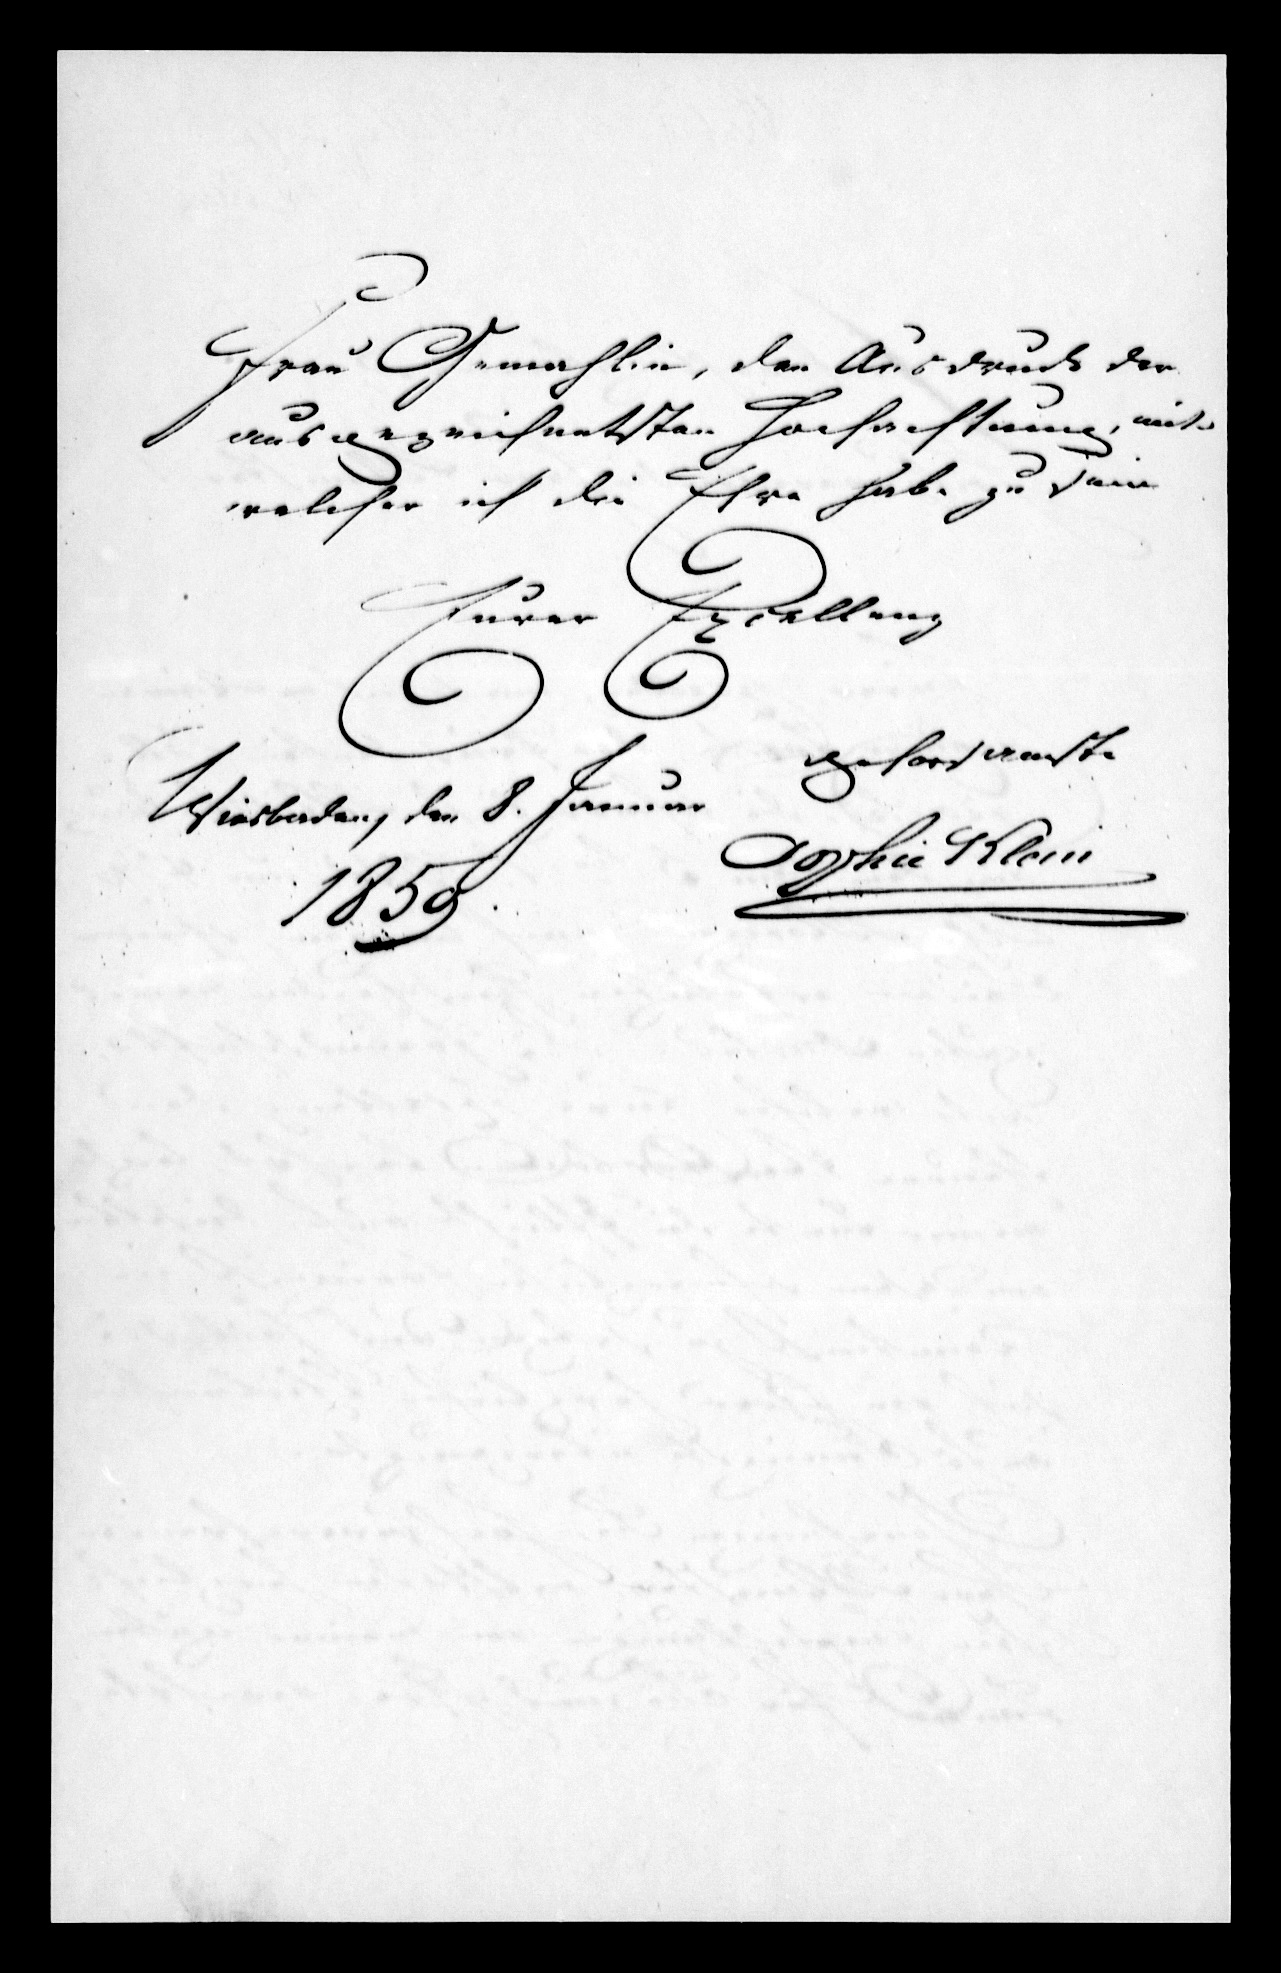 Frau Gemahlin, den Ausdruck der
ausgezeichnetsten Hochachtung, mit
welcher ich die Ehre habe zu sein
Eurer Excellenz
gehorsamste
Wiesbaden, den 8. Januar
1859.
Sophie Klein